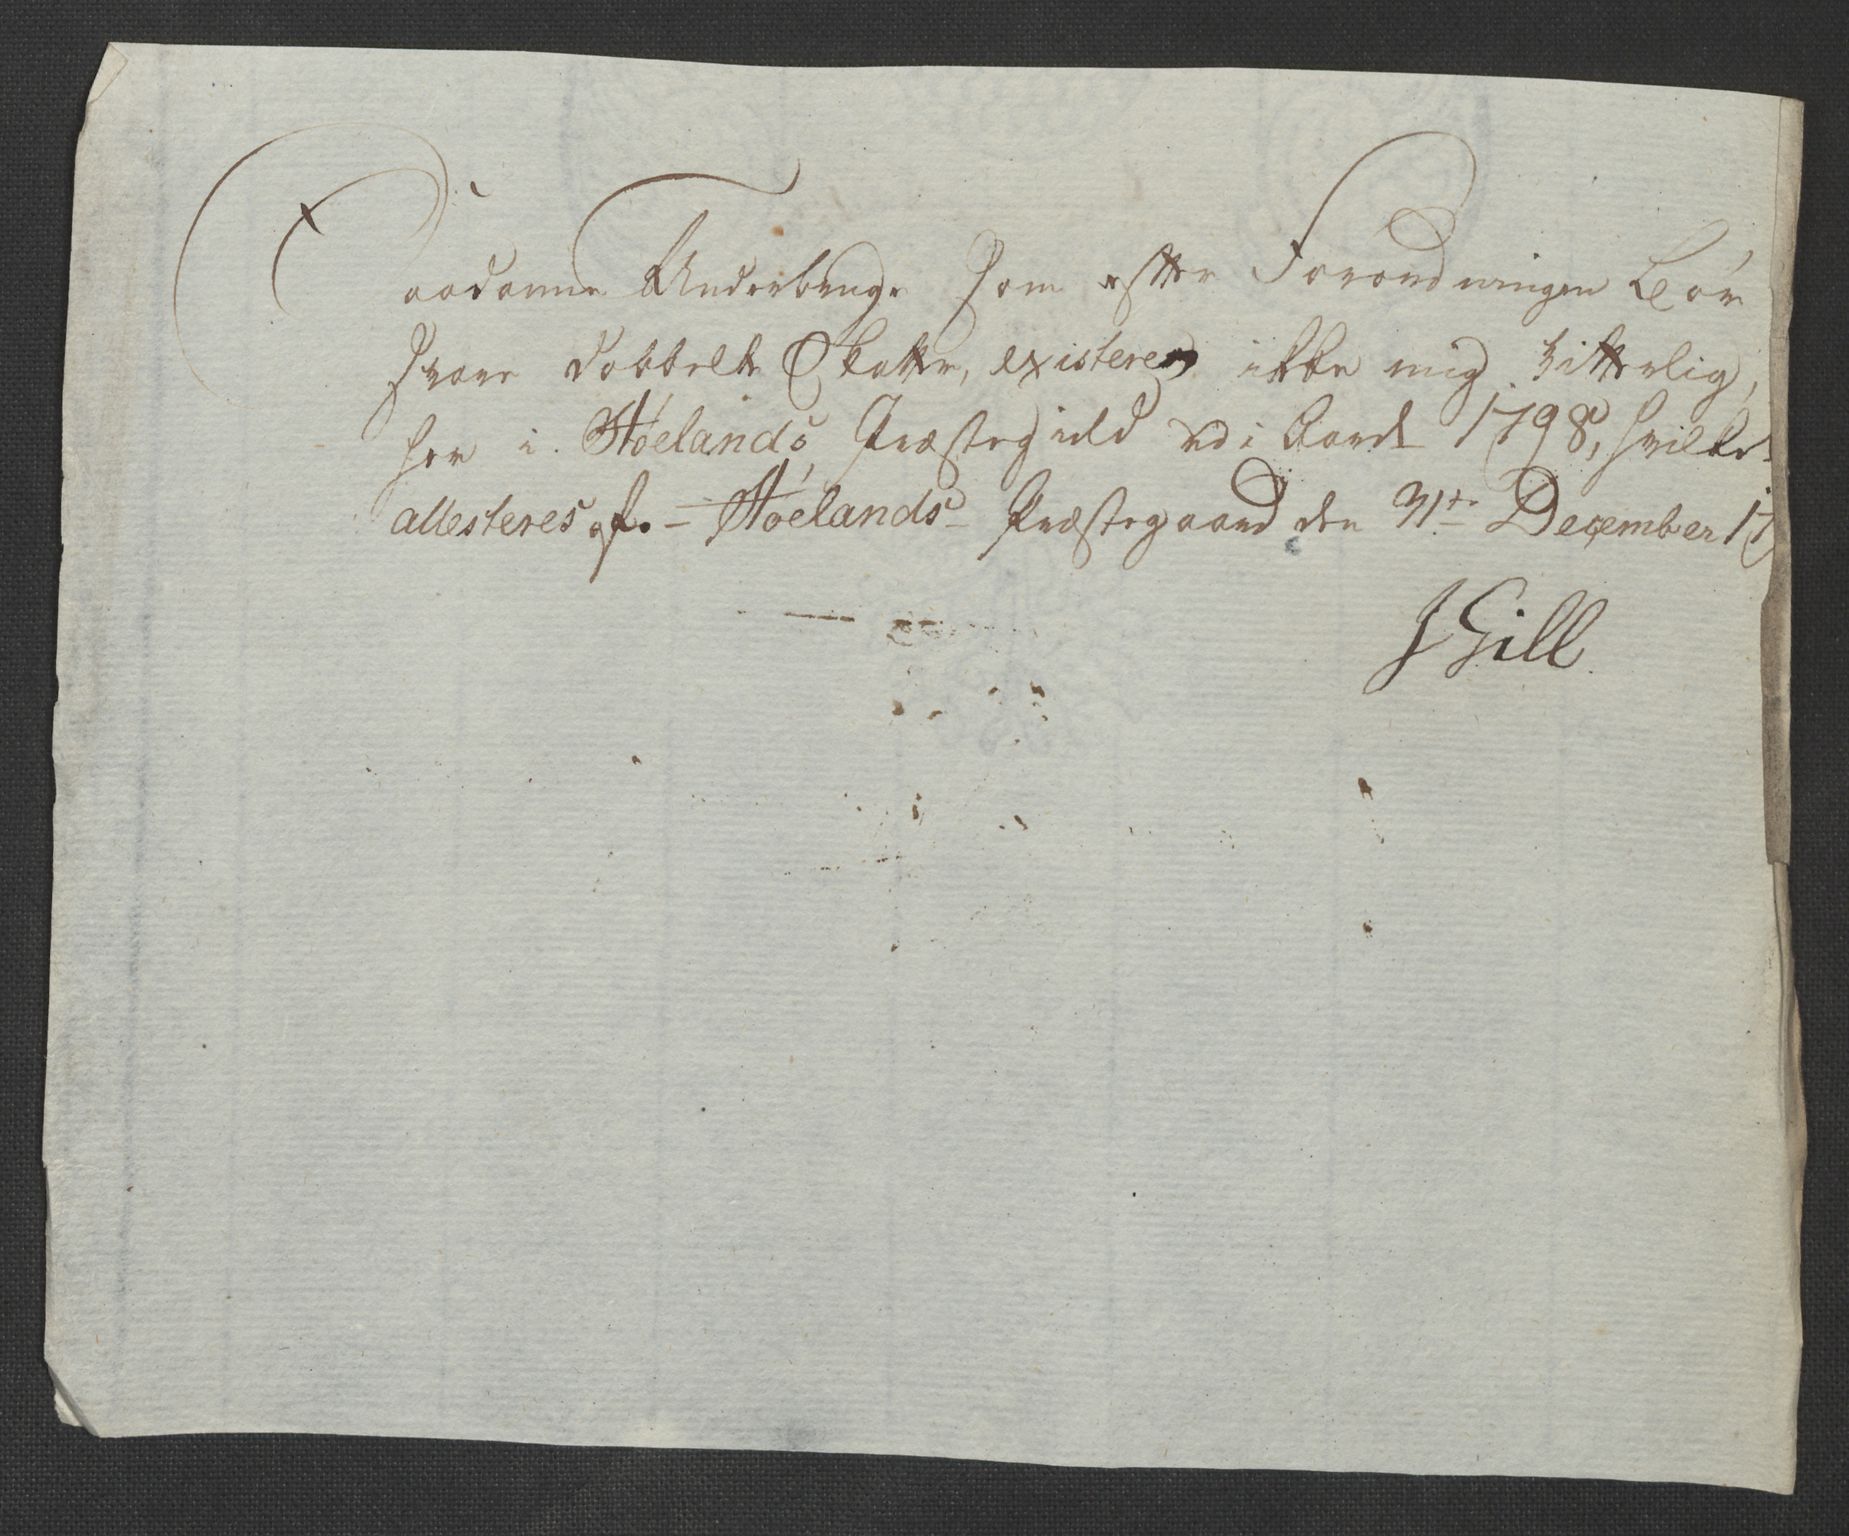 Saadanne Underbruge som efter Forordningen bør
svare dobbelt Skatter, existerer ikke mig vitterlig,
her i Høelands Præstegield udi Aaret 1798, hvilket
attesteres af. – Høelands Præstegaard den 31te December 17
J Gill